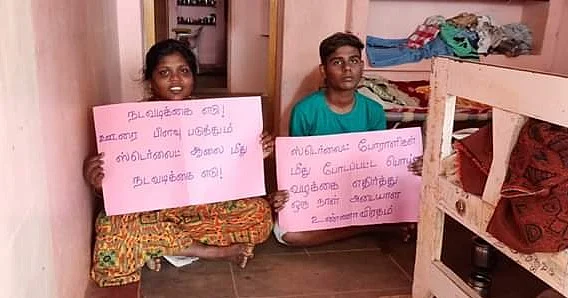 நடவடிக்கை எடு!
ஊரை பிளவு படுத்தும்
ஸ்டெர்லைட் ஆலை மீது
நடவடிக்கை எடு!
ஸ்டெர்லைட் போராளிகள்
மீது போடப்பட்ட பொய்
வழக்கை எதிர்த்து
ஒரு நாள் அடையாள
உண்ணாவிரதம்